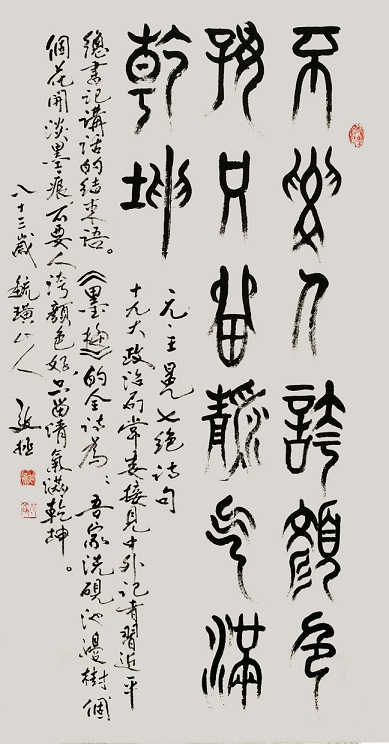 不要人誇顏色
好只留清气滿
乾坤
元·王冕七絕詩句
十九大政治局常委接見中外记者習近平
總書记講话的結束語。《墨梅》的全诗為：吾家洗硯池邊樹個
個花開淡墨痕不要人誇顏色好只留清氣滿乾坤。
八十三歲 毓璜山人